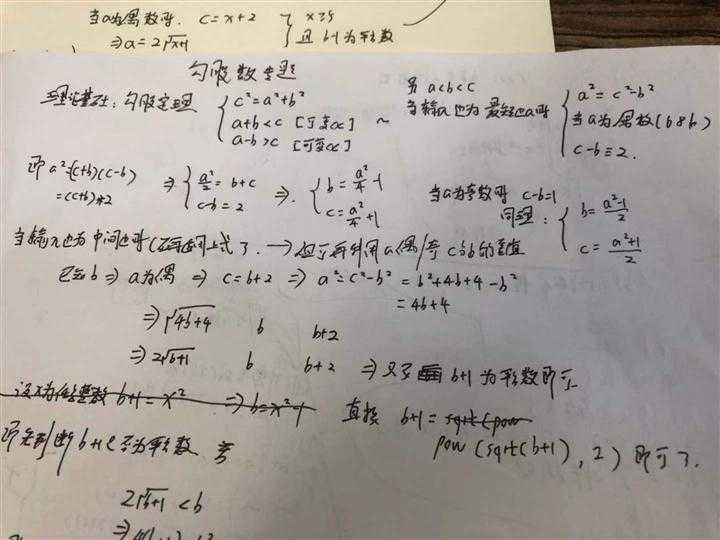 当a为偶数时. c=x+2 { x≥5
⇒a=2√x+1 且 b+1为平方数
勾股数专题
理论基础: 勾股定理 { c²=a²+b²
a+b<c [可变∝] ~
a-b>c [可变∝]
另 a<b<c
当输入边为最短边a时 { a²=c²-b²
当a为偶数(6 8 10)
c-b=2.
即 a²=(c+b)(c-b)
=(c+b)*2
⇒ { a²/2=b+c
c-b=2
⇒. { b=a²/4-1
c=a²/4+1
当a为奇数时 c-b=1
同理: { b=(a²-1)/2
c=(a²+1)/2
当输入边为中间边时 上式了. → 利用a偶/奇 c与b的差值
已知b ⇒ a为偶 ⇒ c=b+2 ⇒ a²=c²-b² =b²+4b+4-b²
=4b+4
⇒√4b+4 b b+2
⇒2√b+1 b b+2 ⇒ 只了 b+1为平方数即可
整数 b+1=x² ⇒b=x²-1 直接 b+1=sqrt(pow
pow(sqrt(b+1),2)即可了.
即先判断b+1是否为平方数
2√b+1<b
⇒